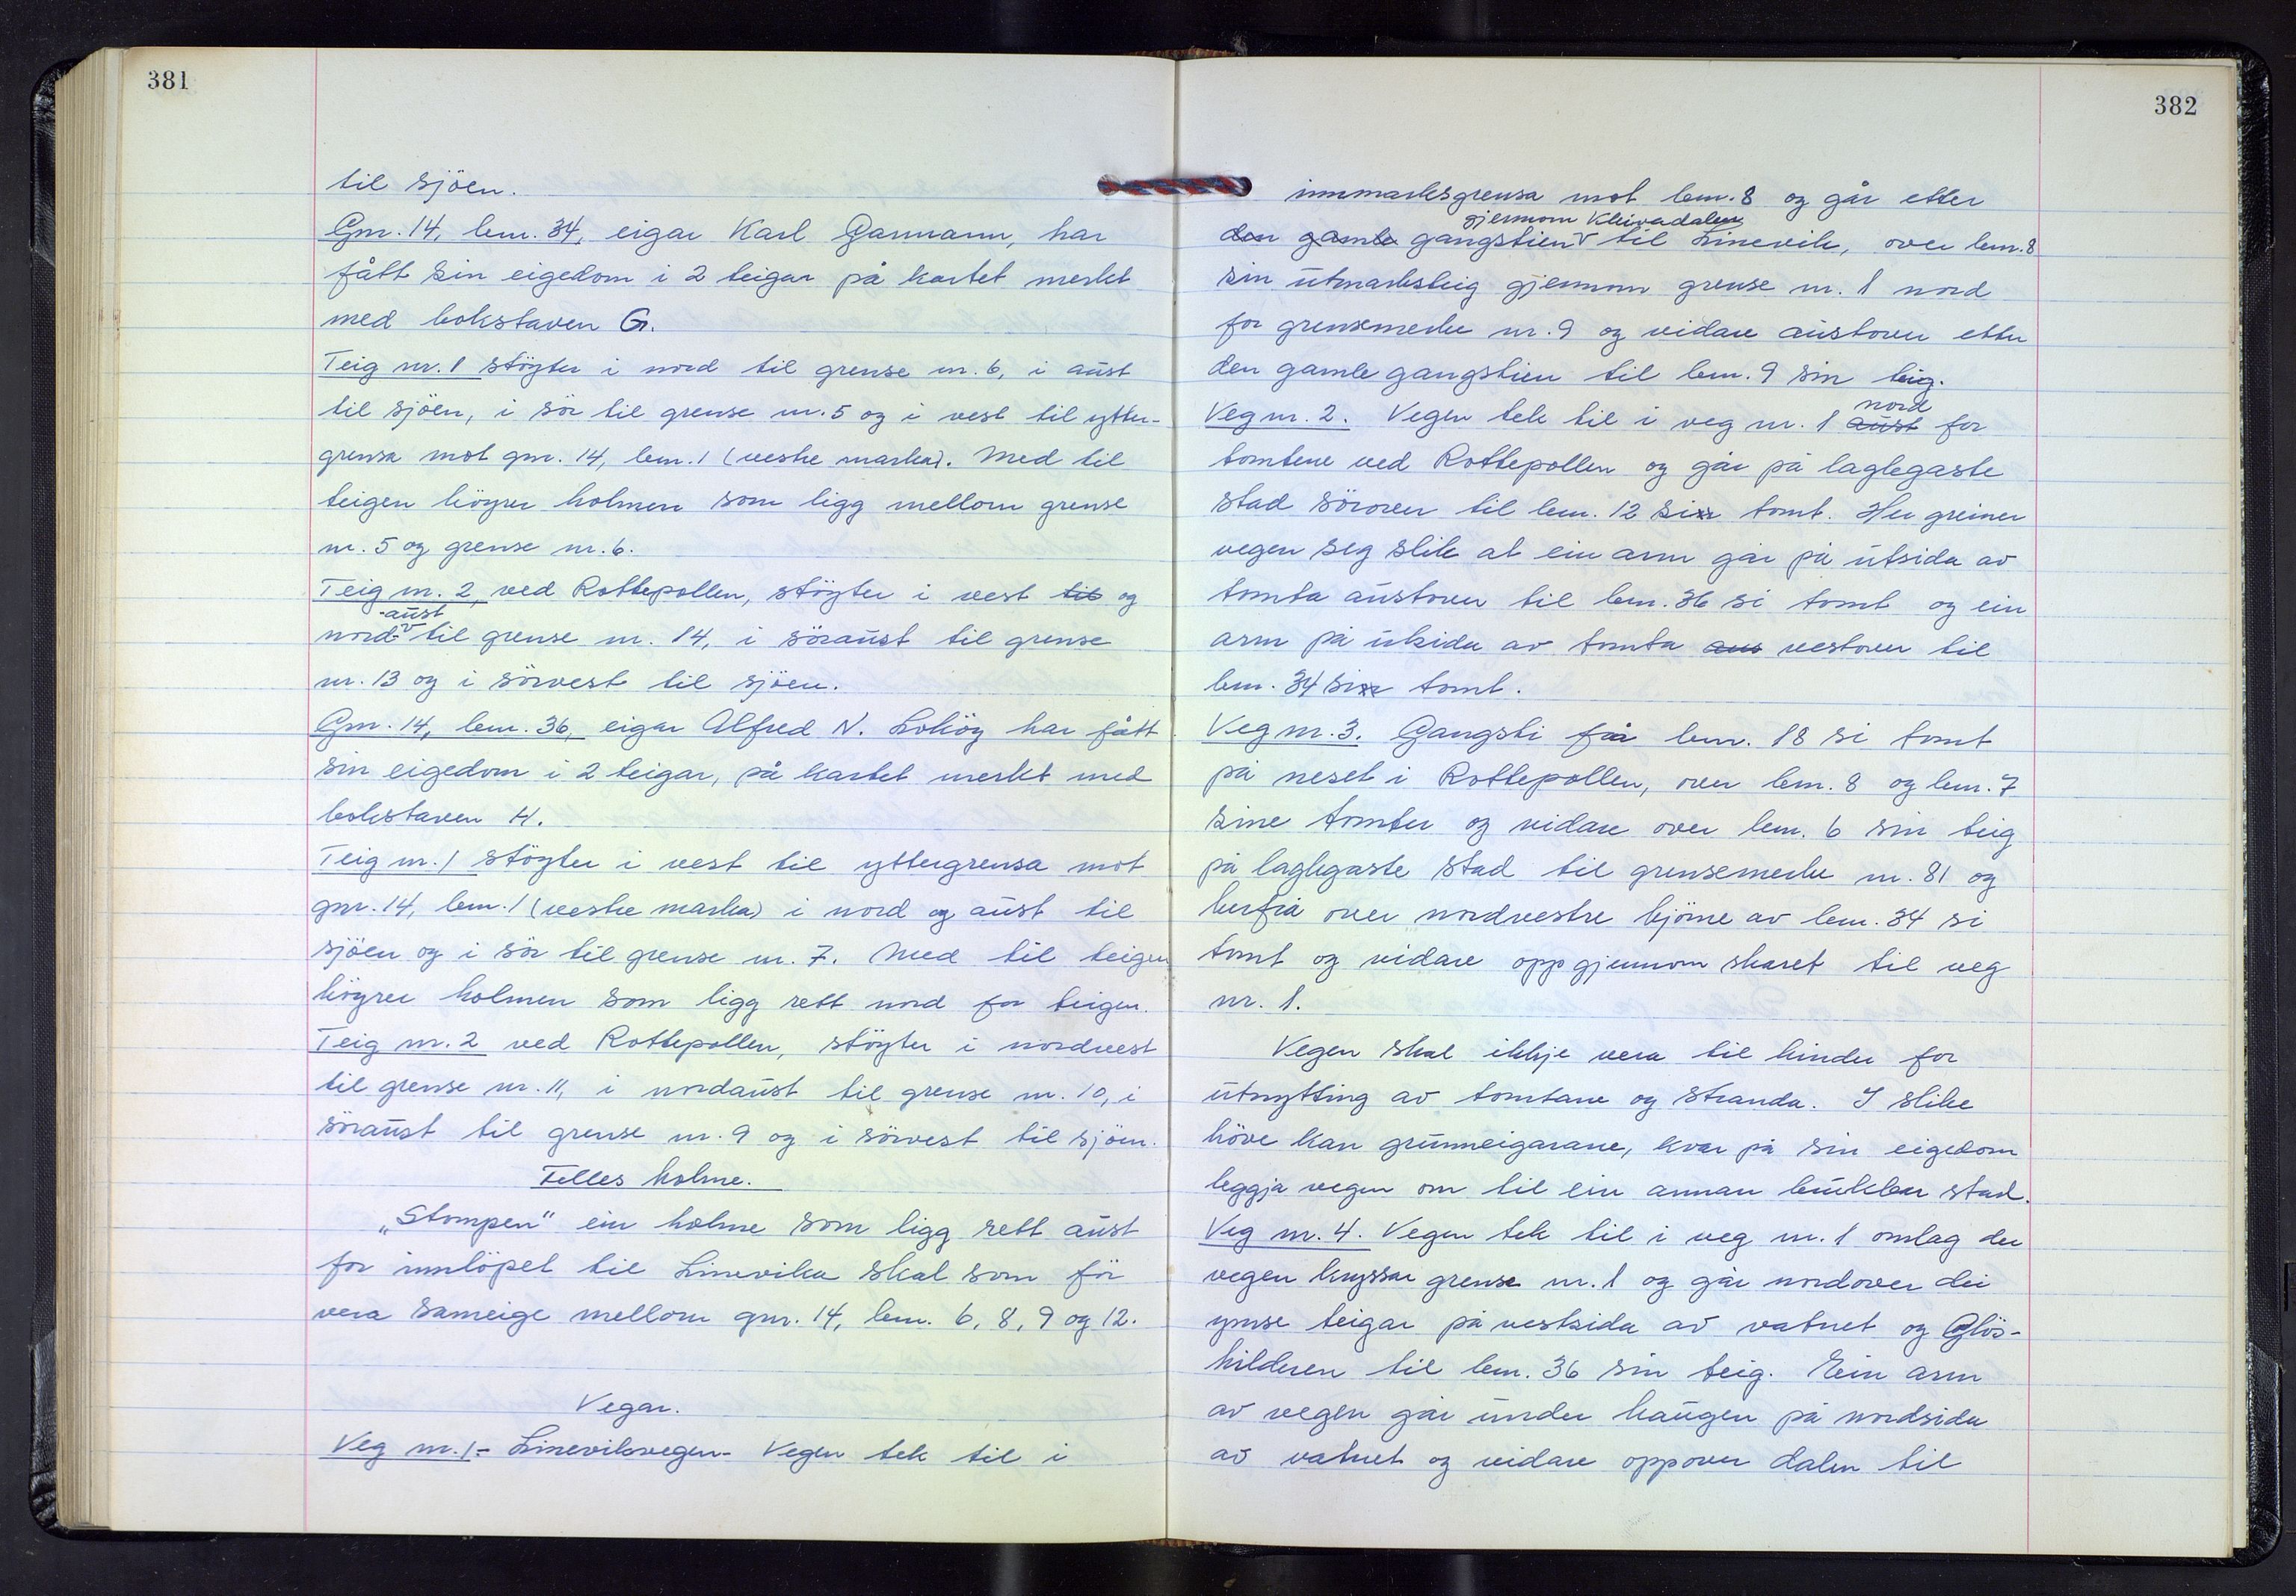 381
til sjöen.
Gnr. 14, bnr. 34, eigar Karl Garmann, har
fått sin eigedom i 2 teigar på kartet merkt
med bokstaven G.
Teig nr. 1 stöyter i nord til grense nr. 6, i aust
til sjöen, i sör til grense nr. 5 og i vest til ytter-
grensa mot gnr. 14, bnr. 1 (vestre marka). Med til
teigen höyrer holmen som ligg mellom grense
nr. 5 og grense nr. 6.
Teig nr. 2, ved Rottepollen, stöyter i vest til og
-aust
nord- til grense nr. 14, i söraust til grense
nr. 13 og i sörvest til sjöen.
Gnr. 14, bnr. 36, eigar Alfred N. Lohöy har fått
sin eigedom i 2 teigar, på kartet merkt med
bokstaven H.
Teig nr. 1 stöyter i vest til yttergrensa mot
gnr. 14, bnr. 1 (vestre marka) i nord og aust til
sjöen og i sör til grense nr. 7. Med til teigen
höyrer holmen som ligg rett nord for teigen.
Teig nr. 2 ved Rottepollen, stöyter i nordvest
til grense nr. 11, i nordaust til grense nr. 10, i
söraust til grense nr. 9 og i sörvest til sjöen.
Felles holme.
„Stompen" ein holme som ligg rett aust
for innlöpet til Linevika skal som för
vera sameige mellom gnr. 14, bnr. 6, 8, 9 og 12.
Vegar.
Veg nr. 1.- Linevikvegen- Vegen tek til i
382
innmarksgrensa mot bnr. 8 og går etter
gjennom Kleivadalen
den gamle gangstien til Linevik, over bnr. 8
sin utmarksteig gjennom grense nr. 1 nord
for grensemerke nr. 9 og vidare austover etter
den gamle gangstien til bnr. 9 sin teig.
nord
Veg nr. 2. Vegen tek til i veg nr. 1 aust for
tomtene ved Rottepollen og går på laglegaste
stad sörover til bnr. 12 sin tomt. Her greiner
vegen seg slik at ein arm går på utsida av
tomta austover til bnr. 36 si tomt og ein
arm på utsida av tomta aus vestover til
bnr. 34 sin tomt.
Veg nr. 3. Gangsti frå bnr. 18 si tomt
på neset i Rottepollen, over bnr. 8 og bnr. 7
sine tomter og vidare over bnr. 6 sin teig
på laglegaste stad til grensemerke nr. 81 og
herfrå over nordvestre hjörne av bnr. 34 si
tomt og vidare opp gjennom skaret til veg
nr. 1.
Vegen skal ikkje vera til hinder for
utnytting av tomtane og stranda. I slike
höve kan grunneigarane, kvar på sin eigedom
leggja vegen om til ein annan brukbar stad.
Veg nr. 4. Vegen tek til i veg nr. 1 omlag der
vegen kryssar grense nr. 1 og går nordover dei
ymse teigar på vestsida av vatnet og Glös-
kilderen til bnr. 36 sin teig. Ein arm
av vegen går under haugen på nordsida
av vatnet og vidare oppover dalen til